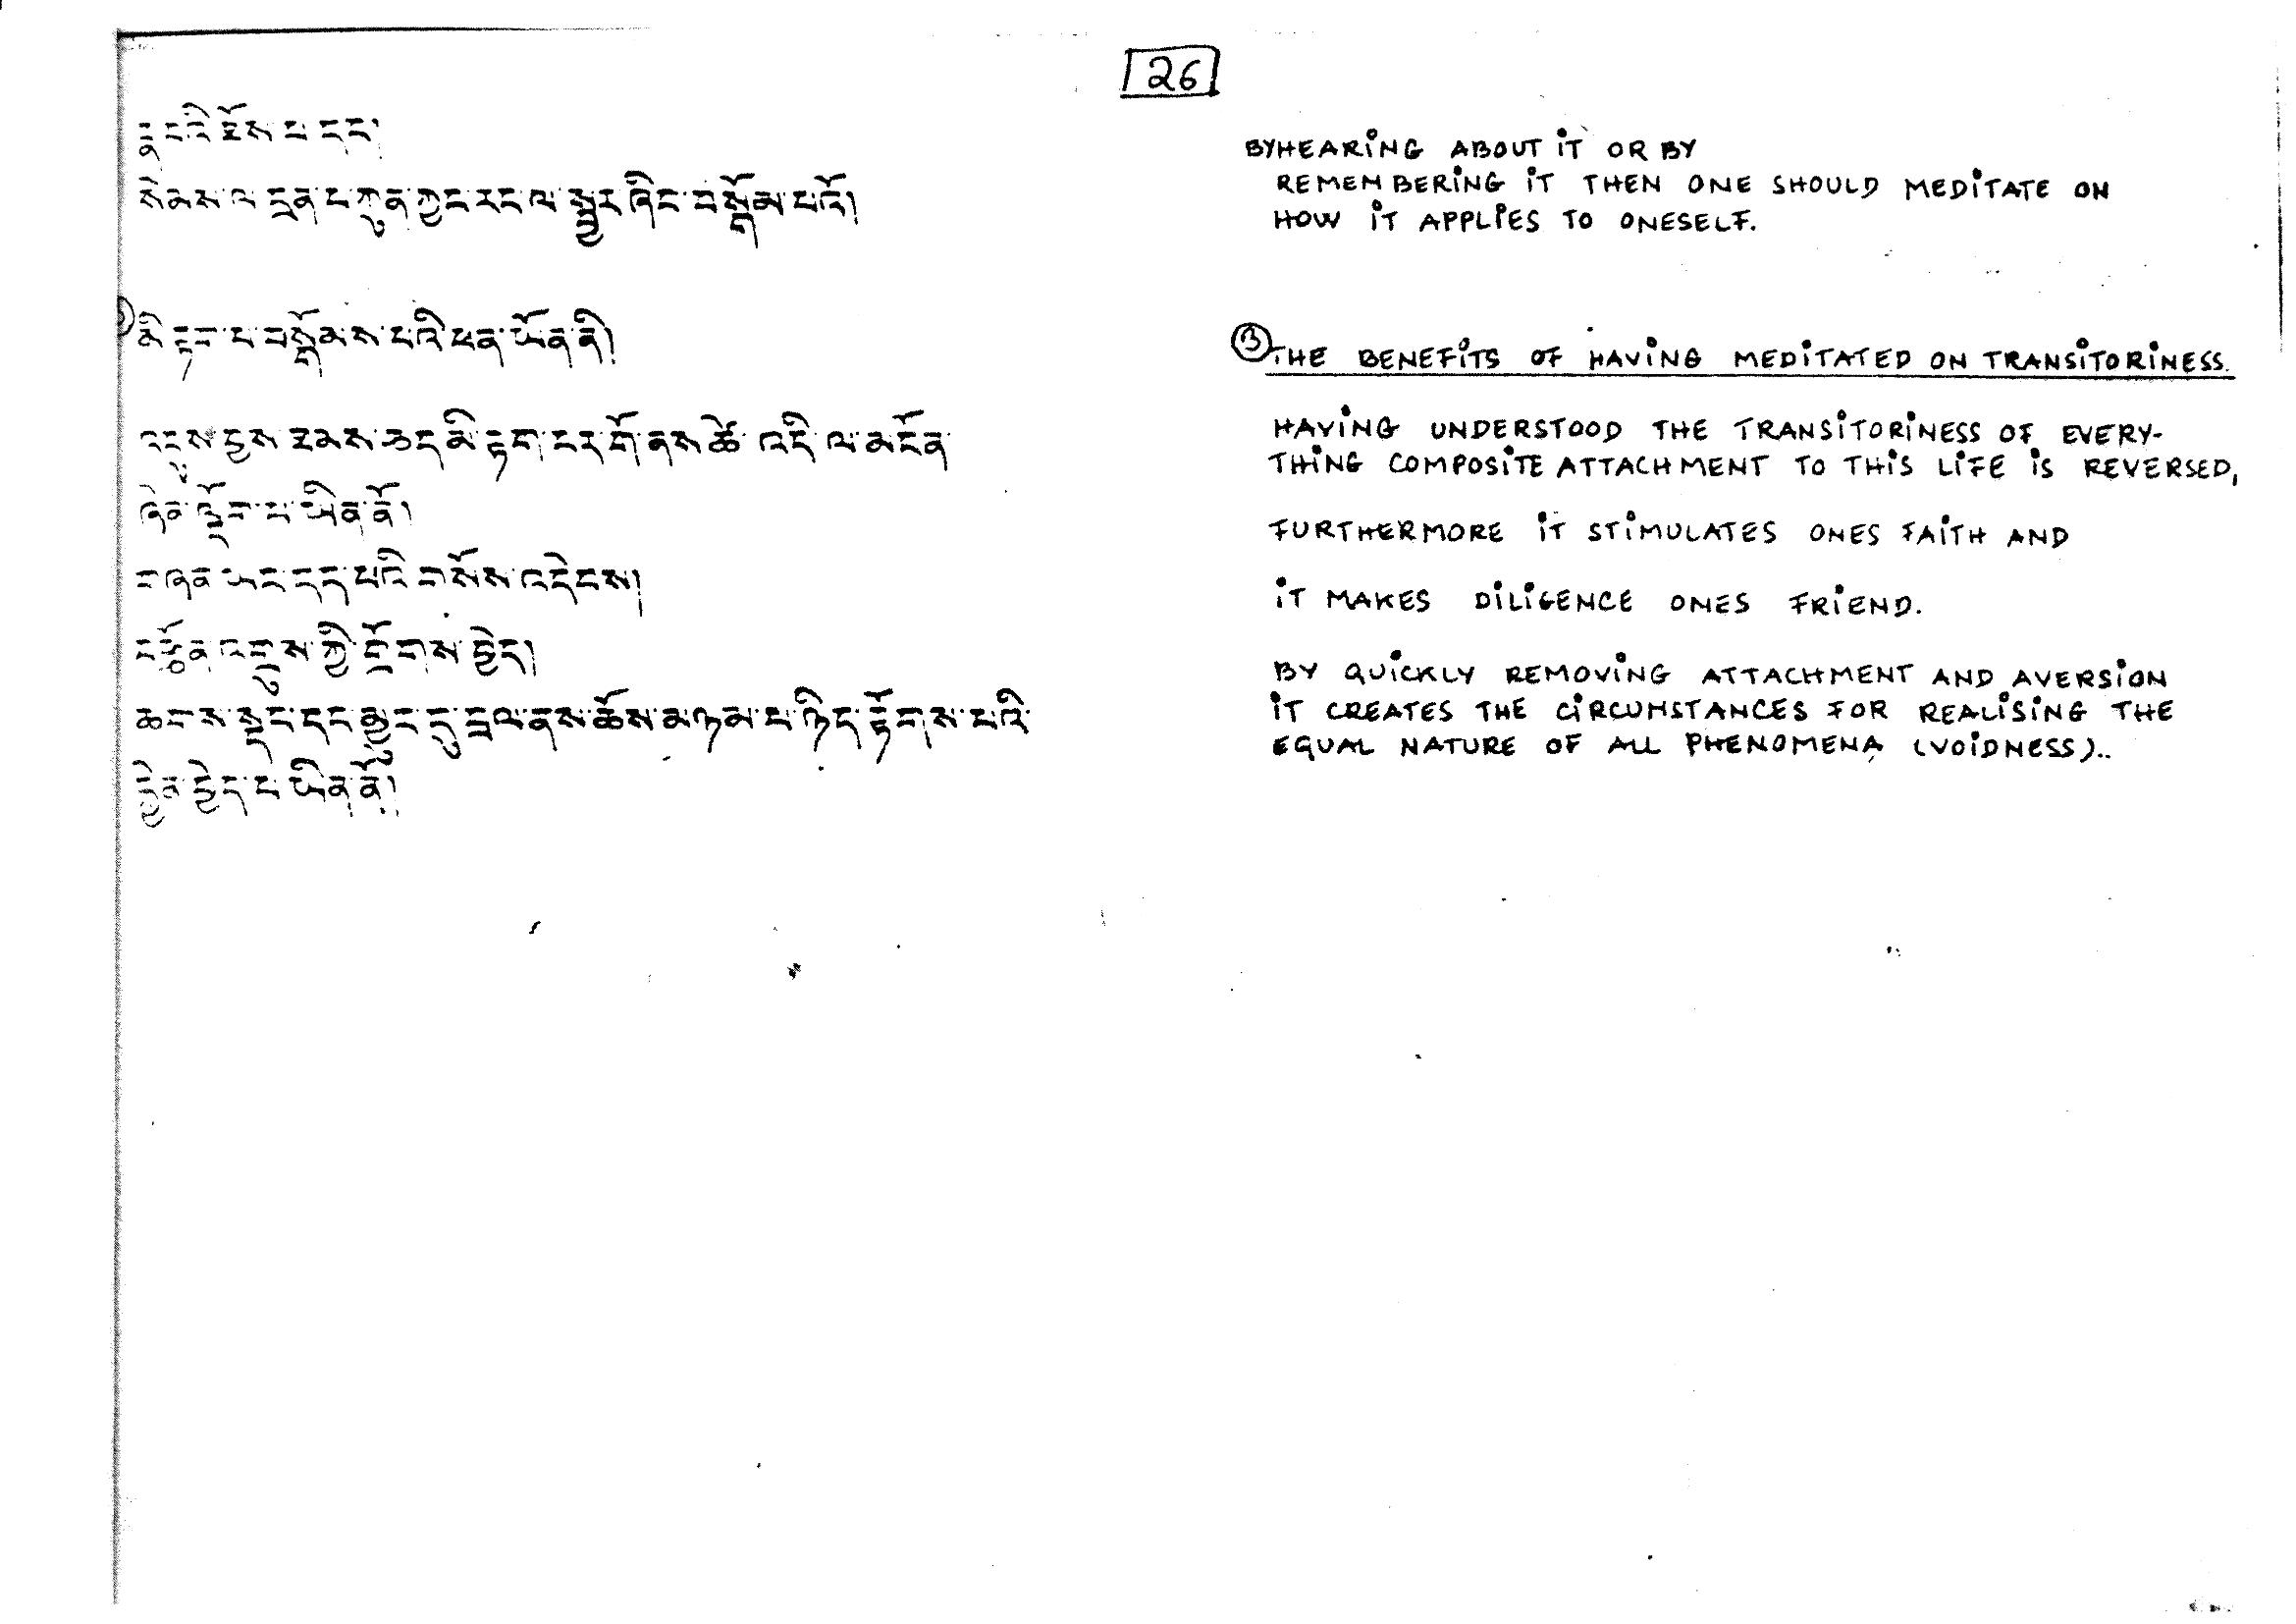 26
རྣ་བའི་ཐོས་པ་དང་།
སེམས་ལ་དྲན་པ་ཀུན་ཀྱང་རང་ལ་སྦྱར་ཞིང་བསྒོམ་པའོ།
མི་རྟག་པ་བསྒོམས་པའི་ཕན་ཡོན་ནི།
འདུས་བྱས་ཐམས་ཅད་མི་རྟག་པར་གོ་ནས་ཚེ་འདི་ལ་མངོན་
ཞེན་ལྡོག་པ་ཡིན་ནོ།
གཞན་ཡང་དད་པའི་གསོས་འདེབས།
བརྩོན་འགྲུས་ཀྱི་གྲོགས་བྱེད།
ཆགས་སྡང་དང་མྱུར་དུ་བྲལ་ནས་ཆོས་མཉམ་པ་ཉིད་རྟོགས་པའི་
རྐྱེན་བྱེད་པ་ཡིན་ནོ།
BYHEARING ABOUT IT OR BY
REMEMBERING IT THEN ONE SHOULD MEDITATE ON
HOW IT APPLIES TO ONESELF.
③ THE BENEFITS OF HAVING MEDITATED ON TRANSITORINESS.
HAVING UNDERSTOOD THE TRANSITORINESS OF EVERY-
THING COMPOSITE ATTACHMENT TO THIS LIFE IS REVERSED,
FURTHERMORE IT STIMULATES ONES FAITH AND
IT MAKES DILIGENCE ONES FRIEND.
BY QUICKLY REMOVING ATTACHMENT AND AVERSION
IT CREATES THE CIRCUMSTANCES FOR REALISING THE
EQUAL NATURE OF ALL PHENOMENA (VOIDNESS)..